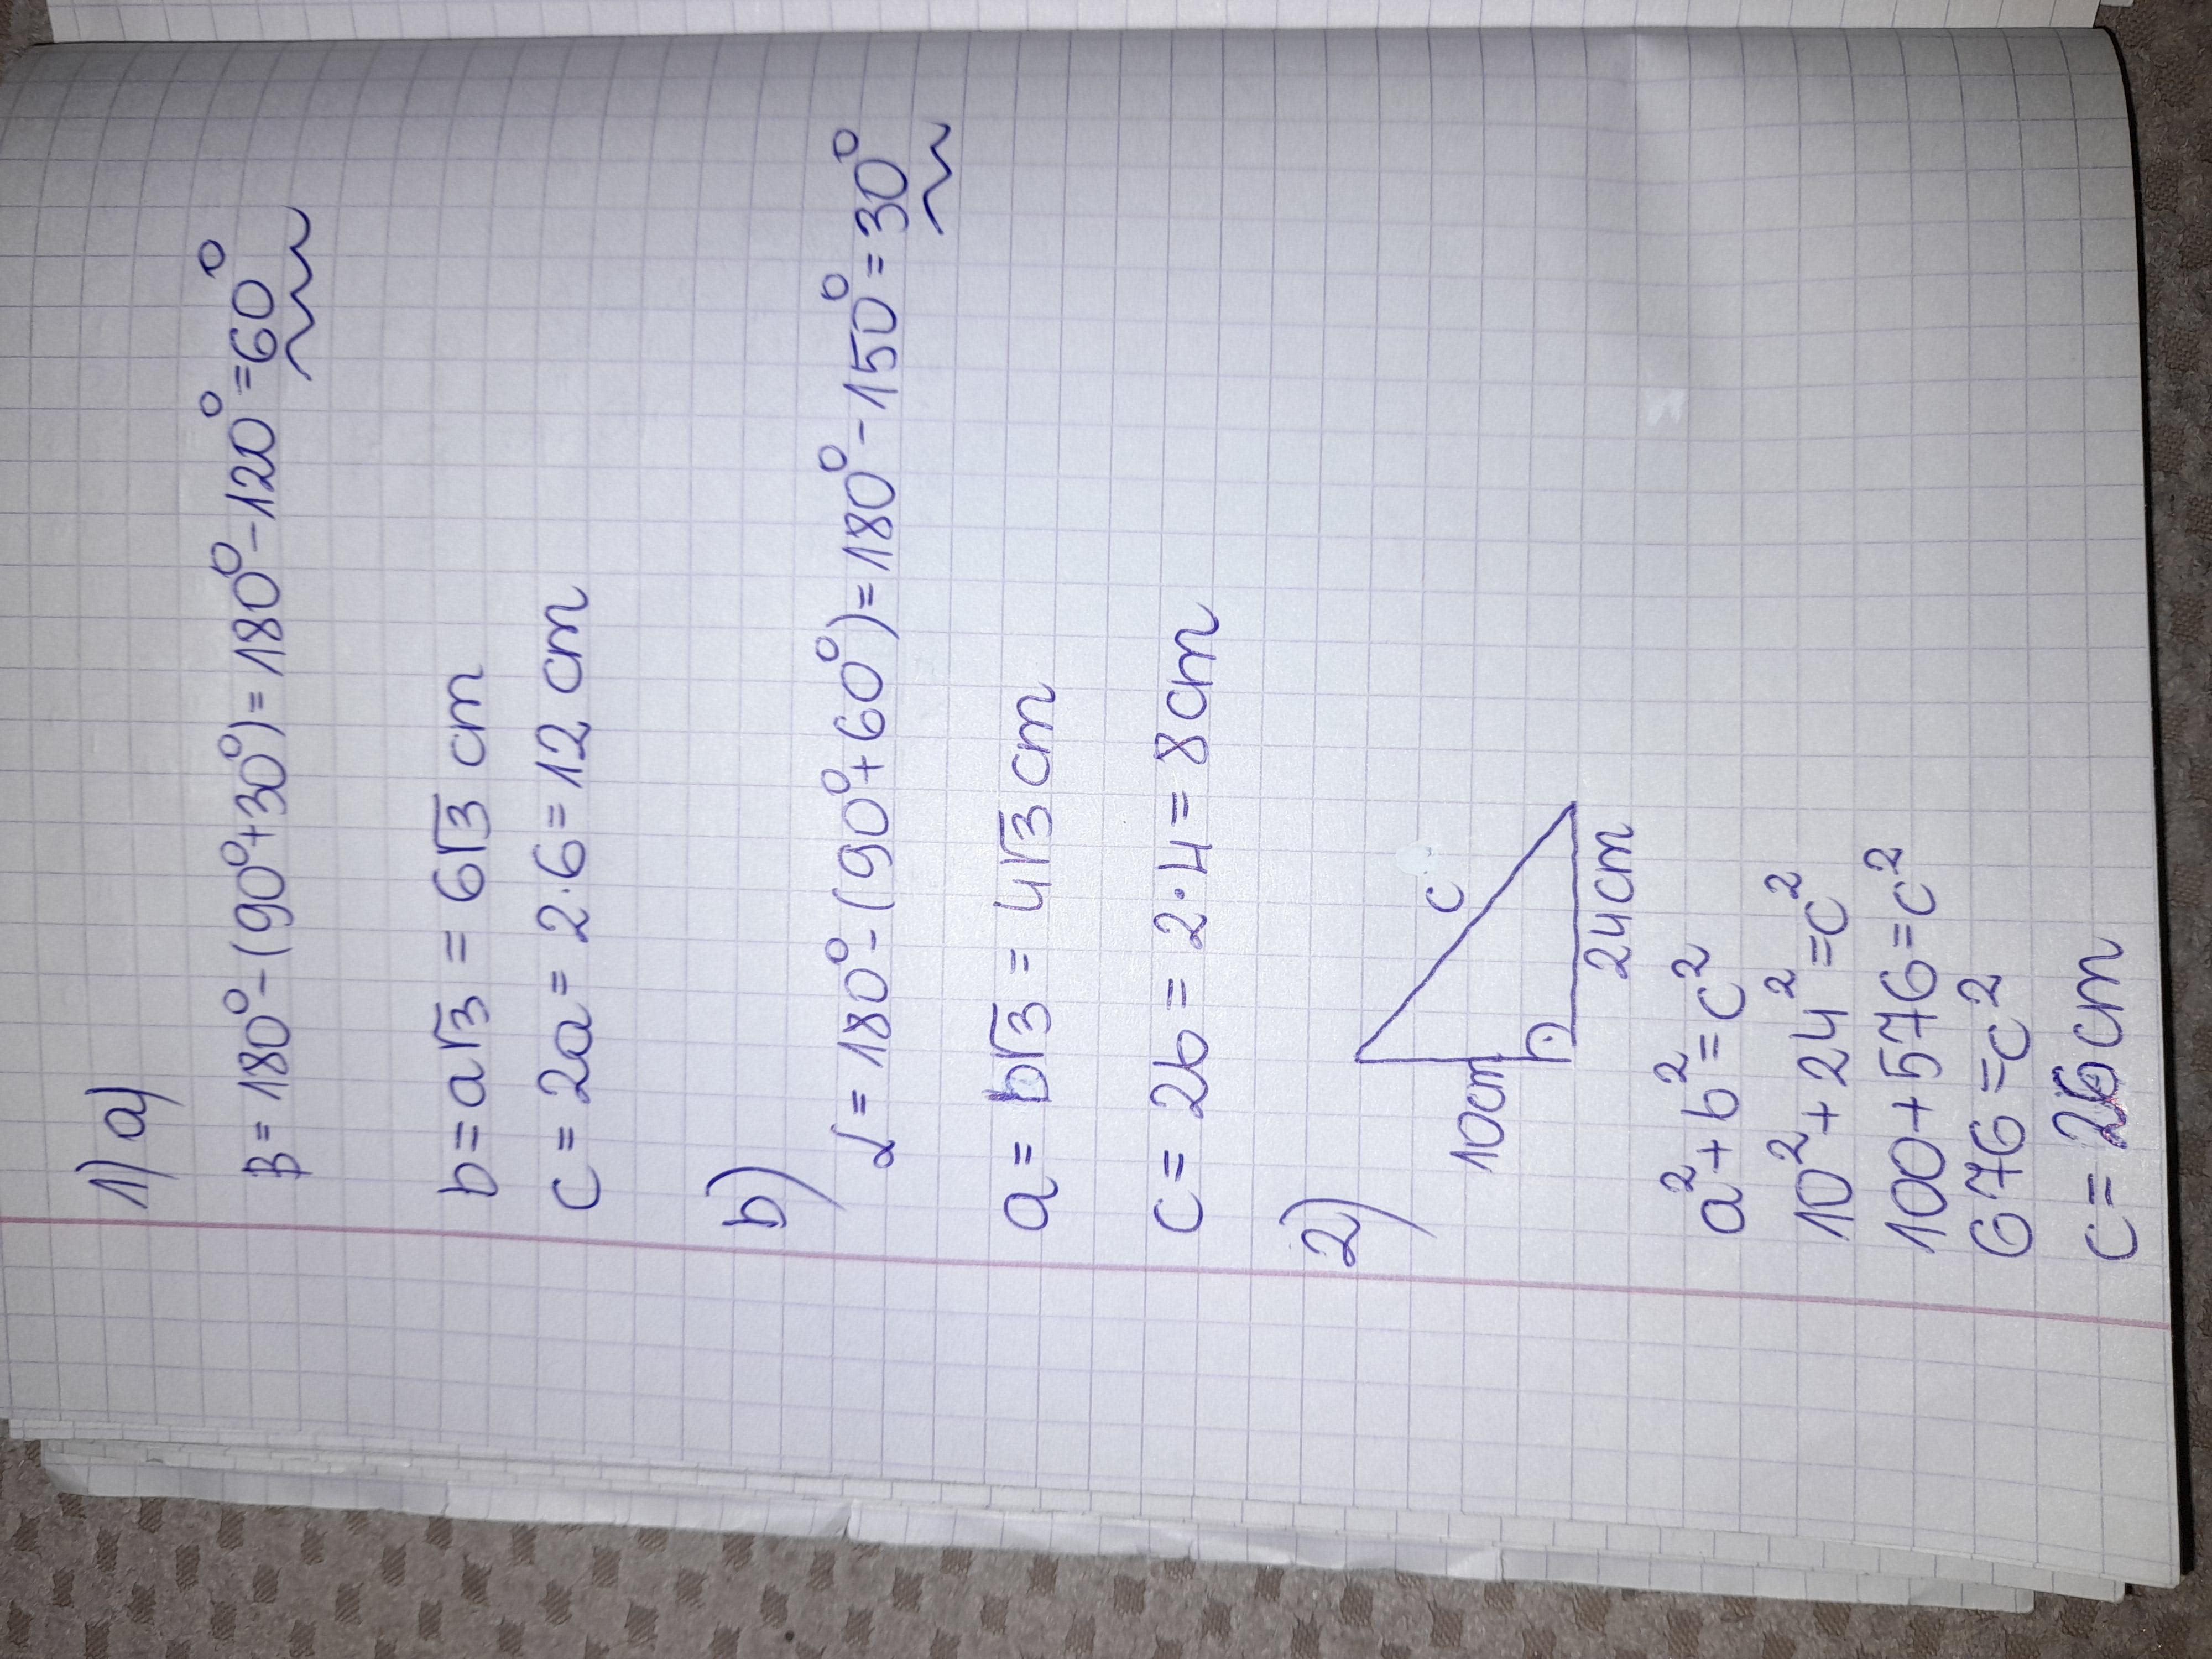 1) a)
β = 180° - (90° + 30°) = 180° - 120° = 60°
b = a√3 = 6√3 cm
c = 2a = 2 · 6 = 12 cm
b)
α = 180° - (90° + 60°) = 180° - 150° = 30°
a = b√3 = 4√3 cm
c = 2b = 2 · 4 = 8 cm
2)
c
10cm
24cm
a² + b² = c²
10² + 24² = c²
100 + 576 = c²
676 = c²
c = 26 cm